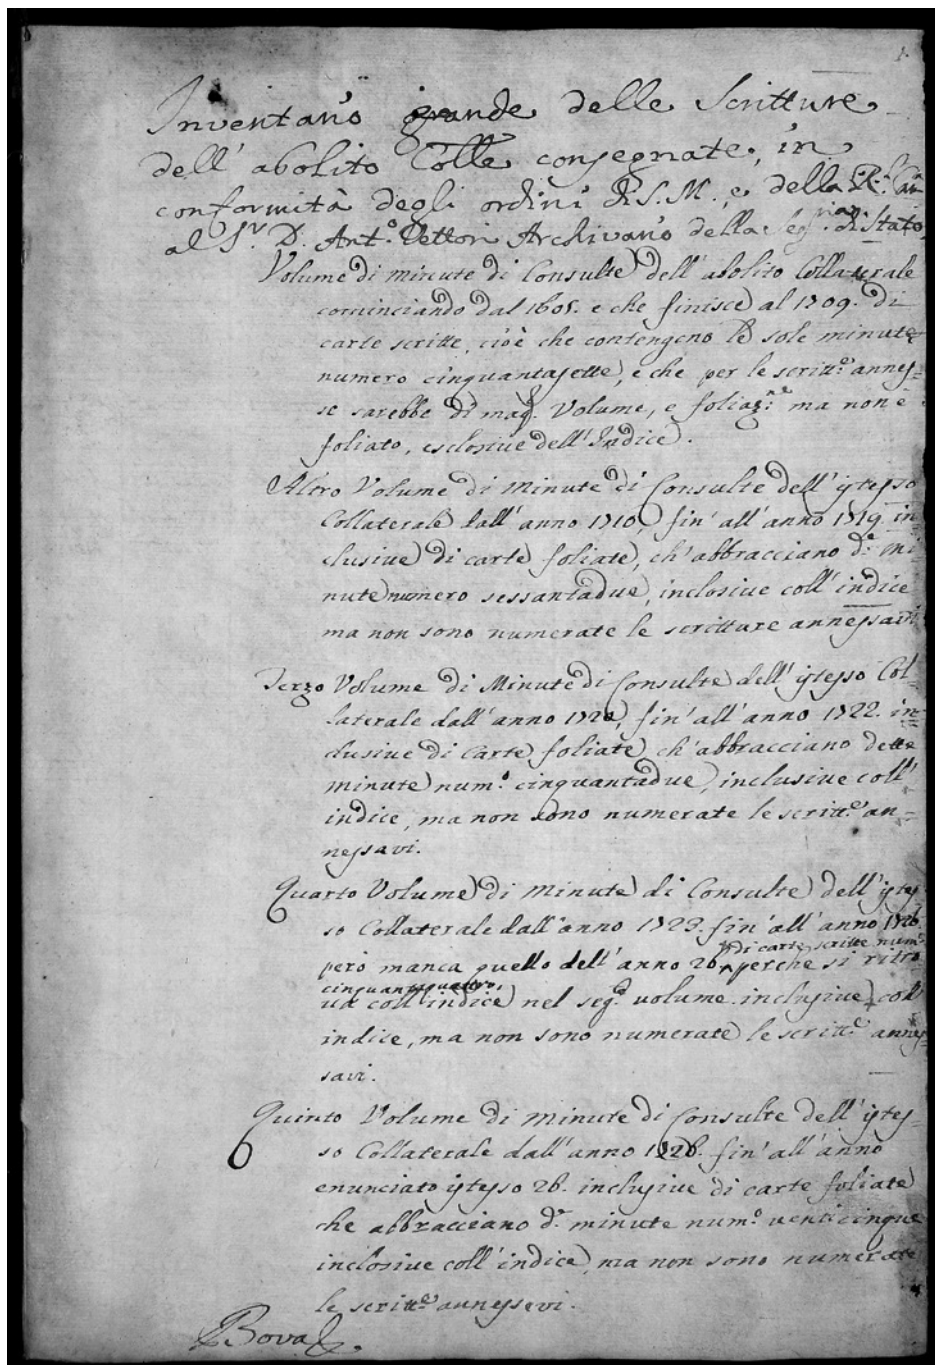 1.
Inventario grande delle Scritture
dell' abolito Colle consegnate, in
conformità degli ordini di S. M., e della R.l
al S.r D. Ant.o Vettori Archivario della Seg.ria di Stato
Volume di minute di Consulte dell' abolito Collaterale
cominciando dal 1605. e che finisce al 1709. di
carte scritte, cioè che contengono le sole minute
numero cinquantasette, e che per le scritt.e annes-
se sarebbe di mag.r Volume, e foliaz.ne ma non è
foliato, esclosive dell' Indice.
Altro Volume di Minute di Consulte dell' istesso
Collaterale dall' anno 1710, fin' all' anno 1719. in-
clusive di carte foliate, ch' abbracciano d.e mi-
nute numero sessantadue, inclosive coll' indice
ma non sono numerate le scritture annessavi
Terzo Volume di Minute di Consulte dell' istesso Col-
laterale dall' anno 1720, fin' all' anno 1722. in-
clusive di Carte foliate ch' abbracciano dette
minute num.o cinquantadue, inclusive coll'
indice, ma non sono numerate le scritt.e an-
nessavi.
Quarto Volume di minute di Consulte dell' istes-
so Collaterale dall' anno 1723. fin' all' anno 1726.
di carte scritte num.o
però manca quello dell' anno 26. perche si ritro-
cinquantaquattro,
va coll' indice nel seg.te volume inclusive coll'
indice, ma non sono numerate le scritt.e annes-
savi.
Quinto Volume di minute di Consulte dell' istes-
so Collaterale dall' anno 1726. fin' all' anno
enunciato istesso 26. inclusive di carte foliate
che abbracciano d.e minute num.o venticinque
inclosive coll' indice, ma non sono numerate
le scritt.e annessevi.
Bova